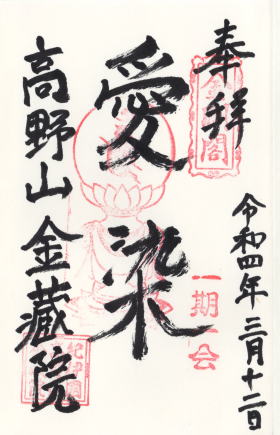 奉拝
令和四年三月十二日
一期一会
愛染
高野山金蔵院